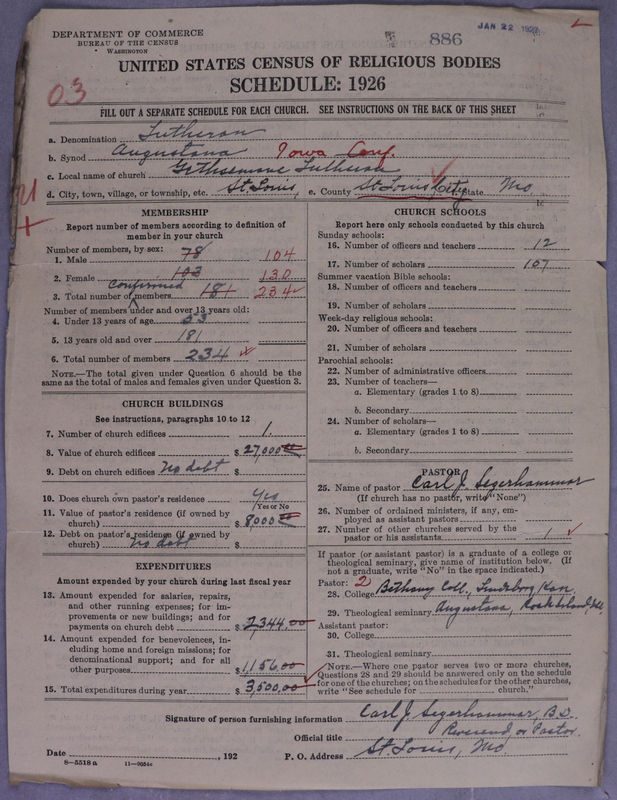 DEPARTMENT OF COMMERCE
BUREAU OF THE CENSUS
WASHINGTON
886
JAN 22 1927
UNITED STATES CENSUS OF RELIGIOUS BODIES
SCHEDULE: 1926
03
FILL OUT A SEPARATE SCHEDULE FOR EACH CHURCH. SEE INSTRUCTIONS ON THE BACK OF THIS SHEET
a. Denomination Lutheran
b. Synod Augustana Iowa Conf.
c. Local name of church Gethsemane Lutheran
d. City, town, village, or township, etc. St. Louis, e. County St. Louis City State Mo
MEMBERSHIP
Report number of members according to definition of member in your church
Number of members, by sex:
1. Male 78 104
2. Female 103 130
confirmed
3. Total number of members 181 234
Number of members under and over 13 years old:
4. Under 13 years of age 53
5. 13 years old and over 181
6. Total number of members 234
NOTE.—The total given under Question 6 should be the same as the total of males and females given under Question 3.
CHURCH BUILDINGS
See instructions, paragraphs 10 to 12
7. Number of church edifices 1.
8. Value of church edifices $ 27,000 00
9. Debt on church edifices no debt $
10. Does church own pastor's residence Yes
Yes or No
11. Value of pastor's residence (if owned by church) $ 8,000 00
12. Debt on pastor's residence (if owned by church) no debt $
EXPENDITURES
Amount expended by your church during last fiscal year
13. Amount expended for salaries, repairs, and other running expenses; for improvements or new buildings; and for payments on church debt $ 2,344 00
14. Amount expended for benevolences, including home and foreign missions; for denominational support; and for all other purposes $ 1,156 00
15. Total expenditures during year $ 3,500,00
CHURCH SCHOOLS
Report here only schools conducted by this church
Sunday schools:
16. Number of officers and teachers 12
17. Number of scholars 107
Summer vacation Bible schools:
18. Number of officers and teachers
19. Number of scholars
Week-day religious schools:
20. Number of officers and teachers
21. Number of scholars
Parochial schools:
22. Number of administrative officers
23. Number of teachers—
a. Elementary (grades 1 to 8)
b. Secondary
24. Number of scholars—
a. Elementary (grades 1 to 8)
b. Secondary
PASTOR
25. Name of pastor Carl J. Segerhammar
(If church has no pastor, write "None")
26. Number of ordained ministers, if any, employed as assistant pastors
27. Number of other churches served by the pastor or his assistants 1
If pastor (or assistant pastor) is a graduate of a college or theological seminary, give name of institution below. (If not a graduate, write "No" in the space indicated.)
Pastor: 2
28. College Bethany Coll., Lindsborg Kan.
29. Theological seminary Augustana, Rock Island, Ill.
Assistant pastor:
30. College
31. Theological seminary
NOTE.—Where one pastor serves two or more churches, Questions 28 and 29 should be answered only on the schedule for one of the churches; on the schedules for the other churches, write "See schedule for church."
Signature of person furnishing information Carl J. Segerhammar, B.D.
Official title Reverend, or Pastor.
Date , 192 P. O. Address St. Louis, Mo.
8—5518 a 11—9054